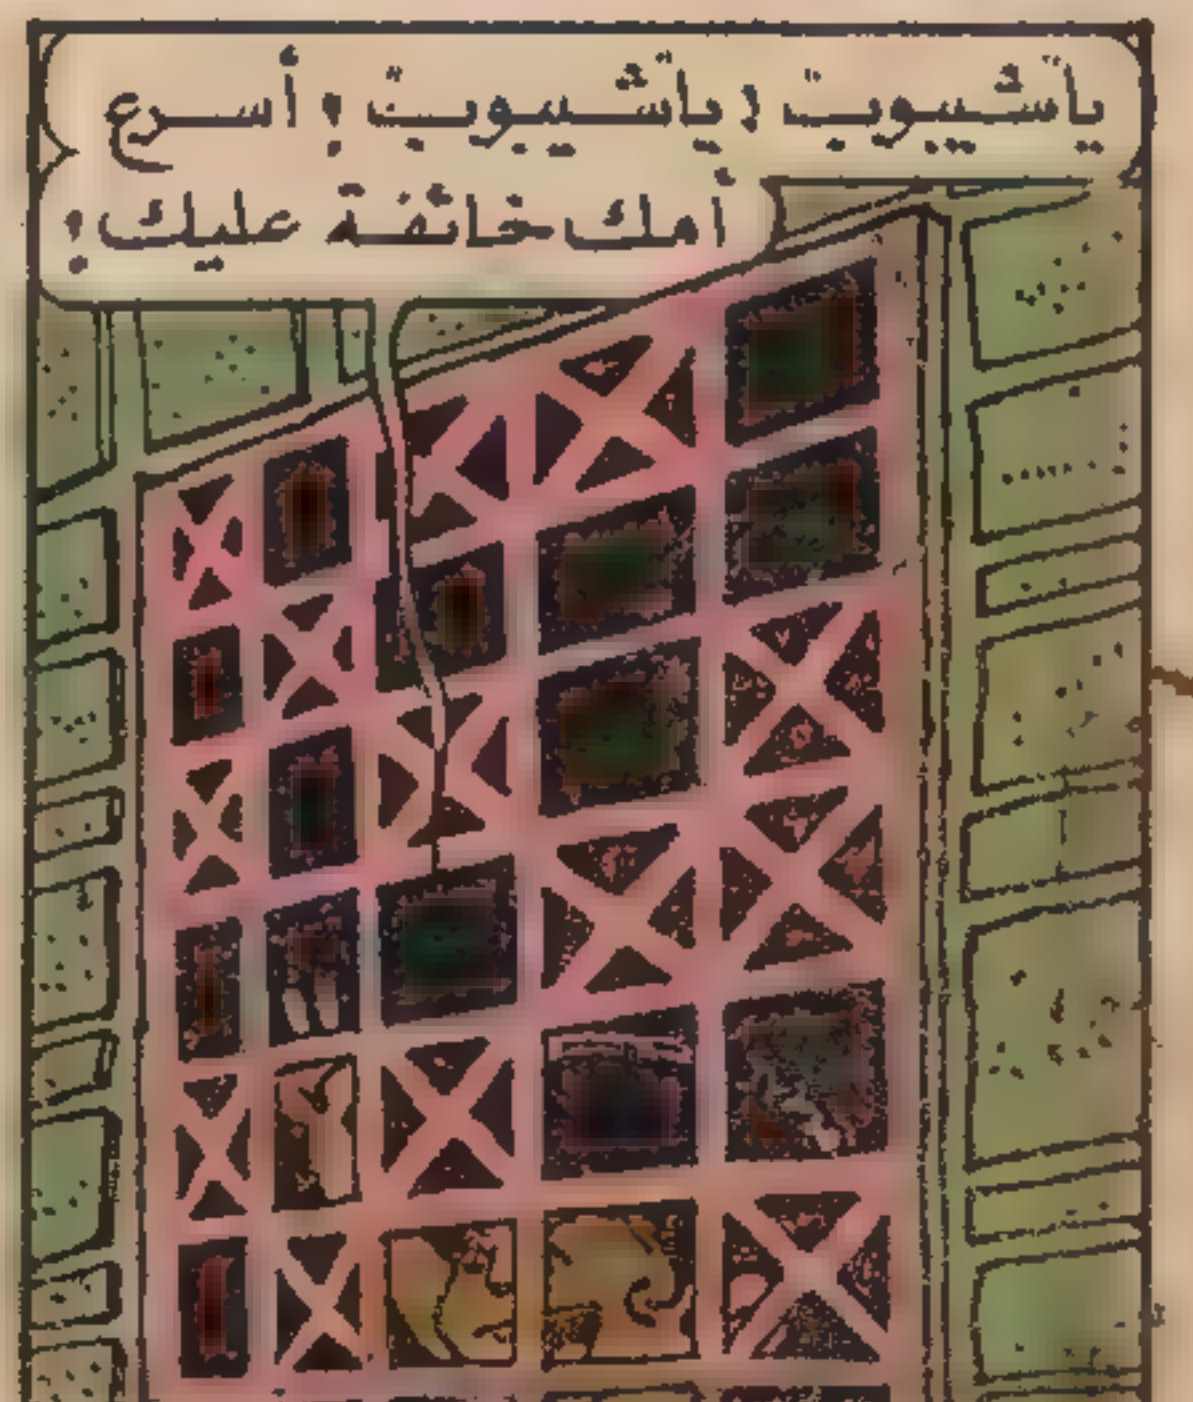 ياشيبوب، ياشيبوب ! أسرع
أمك خائفة عليك !